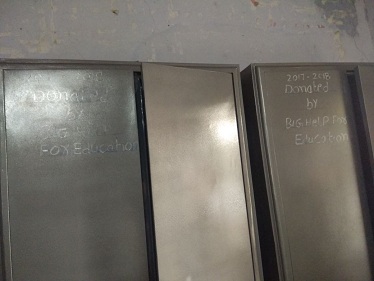 Donated
by
For Education
2017-2018
Donated
by
BIG HELP For
Education